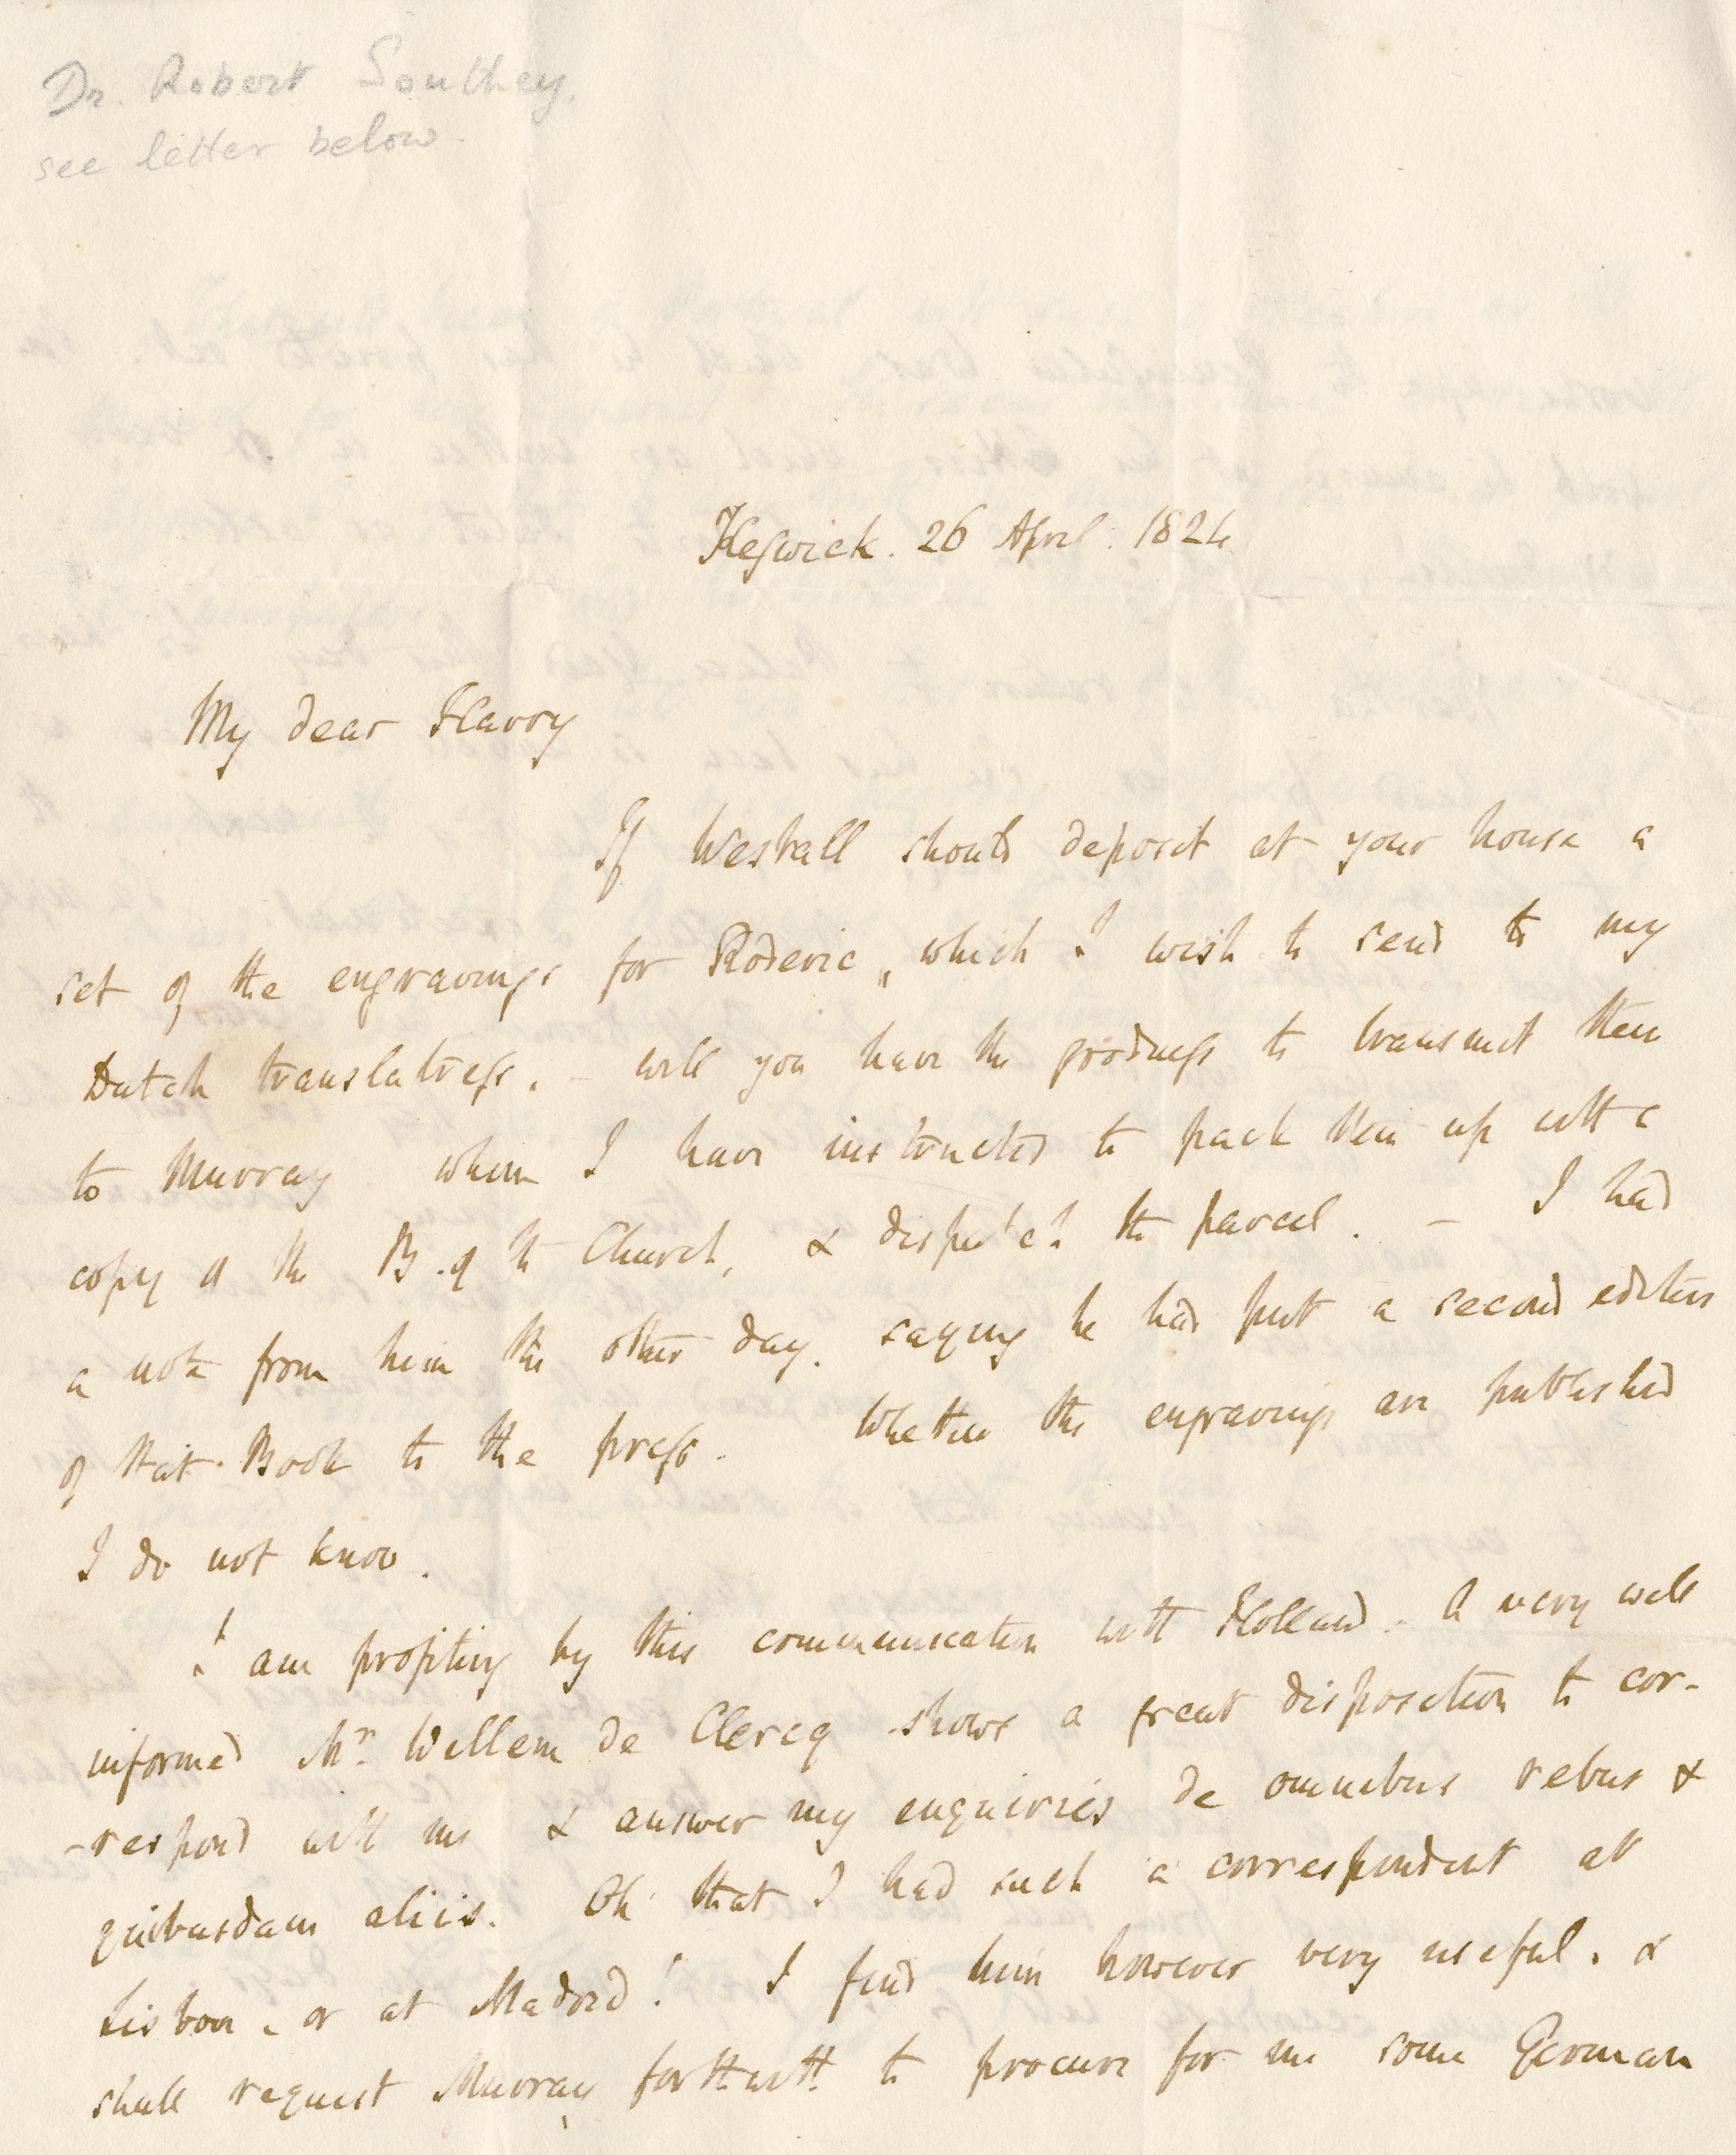 Dr. Robert Southey.
see letter below.
Keswick. 26 April. 1824
My dear Harry
If Westall should deposit at your house a
set of the engravings for Roderic, which I wish to send to my
Dutch translatress. – will you have the goodness to transmit them
to Murray whom I have instructed to pack them up with a
copy of the B. of the Church, & dispatch the parcel. – I had
a note from him the other day. saying he had put a second edition
of that Book to the press. Whether the engravings are published
I do not know.
I am profiting by this communication with Holland. A very well
informed Mr. Willem de Clercq shows a great disposition to cor-
-respond with me & answer my enquiries de omnibus rebus &
quibusdam aliis. Oh that I had such a correspondent at
Lisbon, or at Madrid! I find him however very useful, &
shall request Murray forthwith to procure for me some German